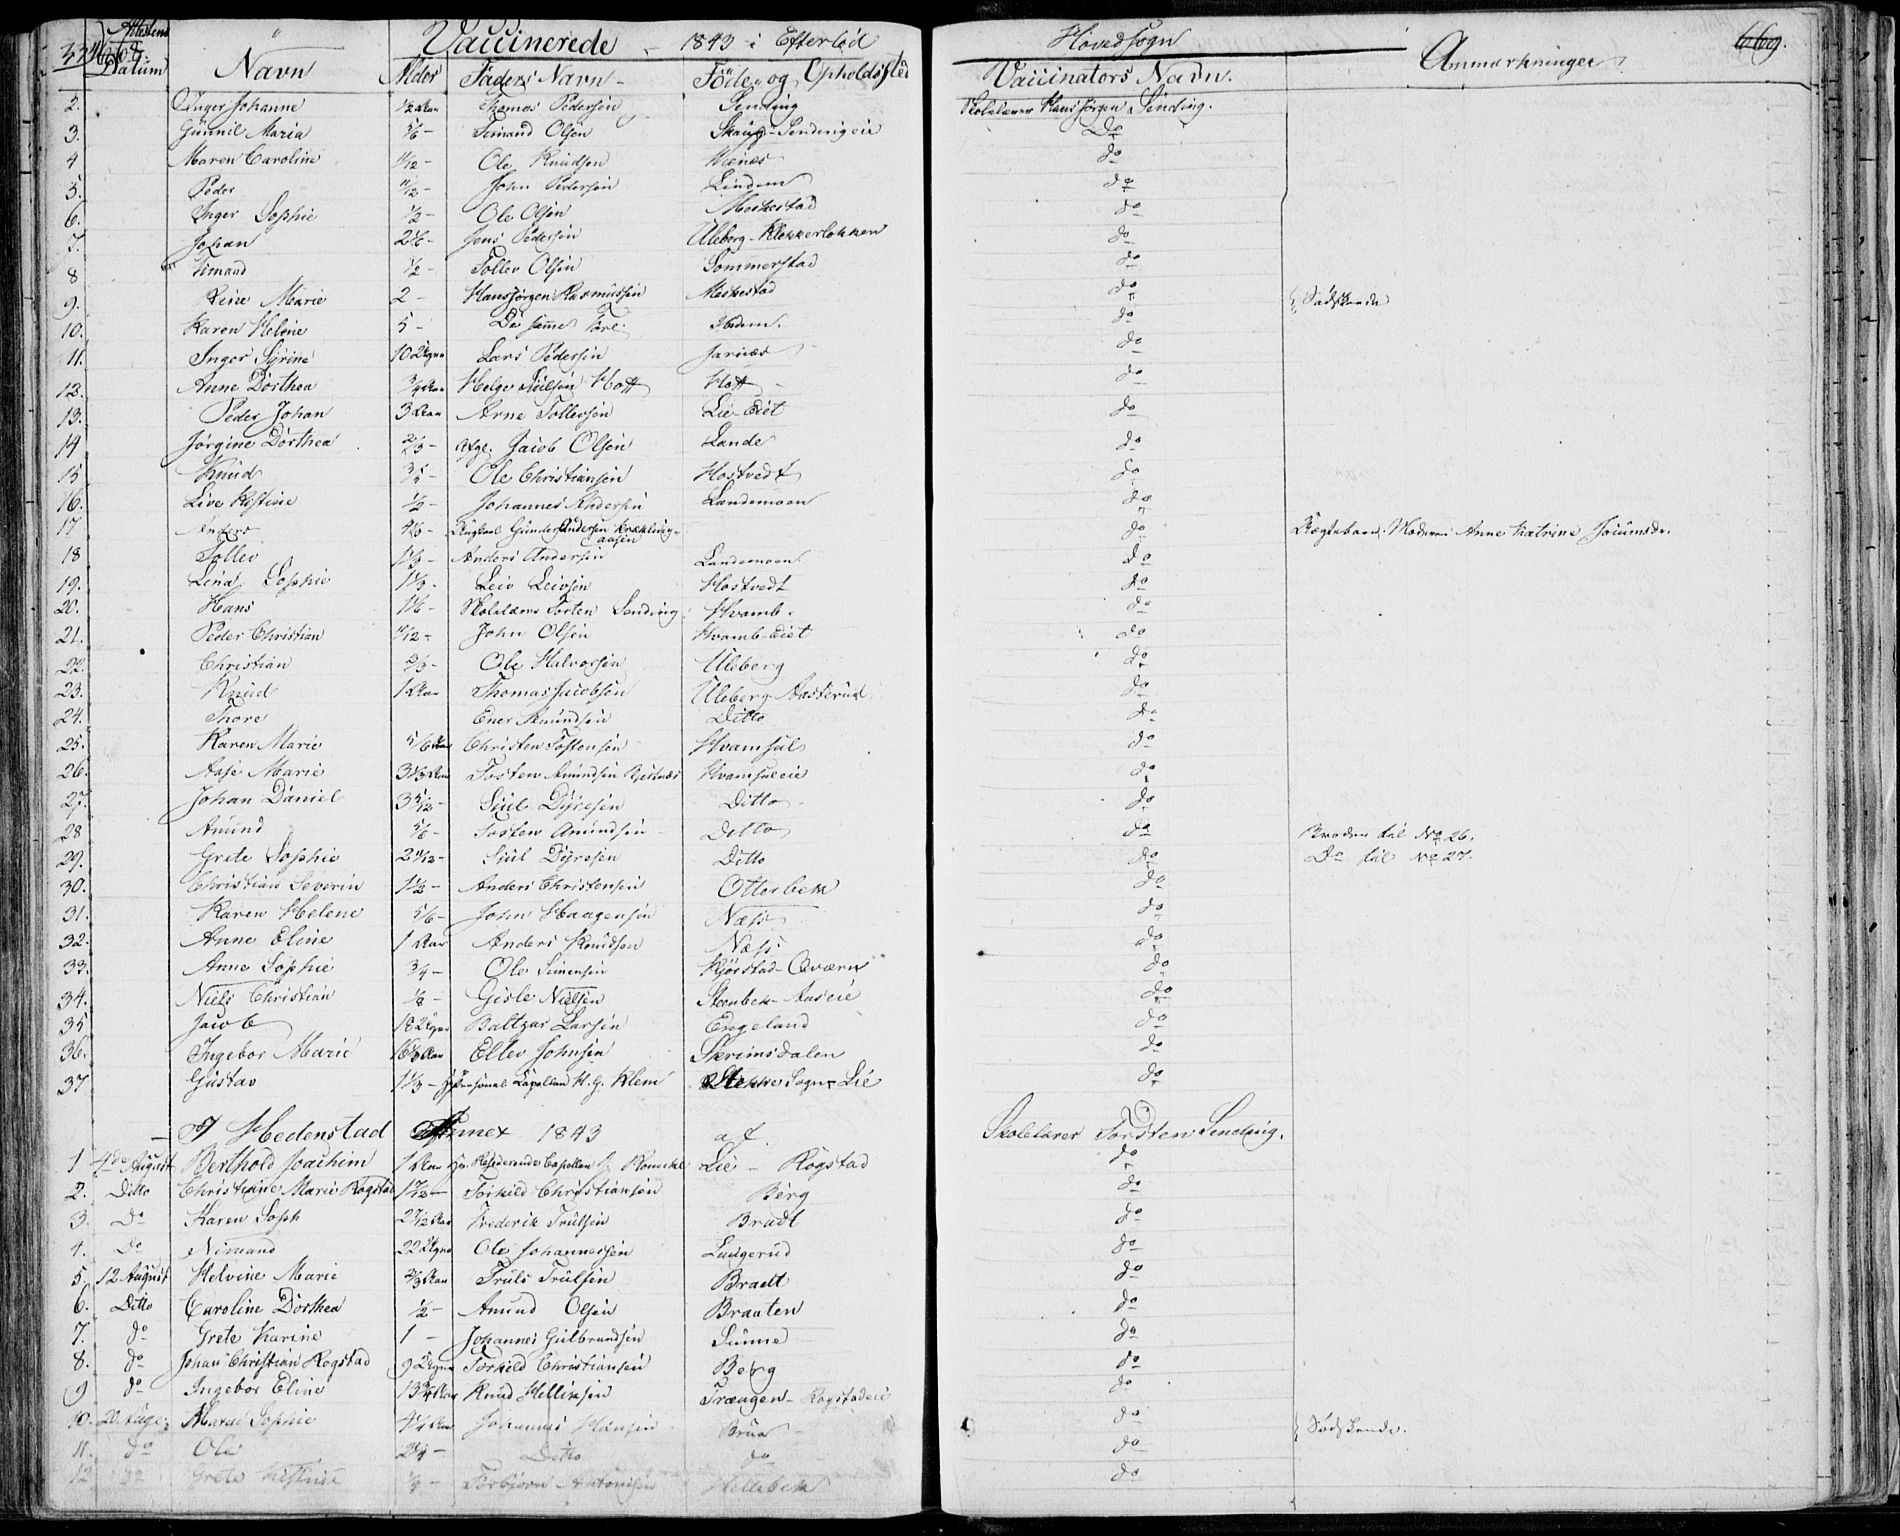 334
668.
Attestens Datum
Navn
Vaccinerede - 1843 i Efterløt
Hovedsogn
669.
Alder
Faders Navn
Føde- og Opholdssted
Vaccinators Navn.
Anmærkninger
2. Inger Johanne 1/2 Aar Thomas Pedersen Sending Skolelærer Hans Jörgen Sending.
3. Gunnil Maria 5/6 - Simand Olsen Skaug-Sendingeie Do
4 Maren Caroline 11/12 - Ole Knudsen do
5. Peder 11/12 - John Pedersen Lindem do
6. Inger Sophie 1/2 - Ole Olsen Meskestad do
7. Johan 2 1/6 - Jens Pedersen Uleberg-Klokkerløkken do
8 Simand 1/2 - Tollev Olsen Sommerstad do
9. Line Marie 2 - Hans Jørgen Rasmussen Meskestad do Södskende
10. Karen Helene 5 - De samme For. Ibidem. do
11. Inger Sirine 10 Uger Lars Pedersen Jarnæs do
12. Anne Dorthea 3/4 Aar Helge Siulsen Hoff Hoff do
13. Peder Johan 3 Aar Arne Tollevsen Lie-Eiet do
14 Jørgine Dorthea 2/3 - afg. Jacob Olsen Lande do
15 Knud 3/4 - Ole Christiansen Hostvedt do
16. Live Kistine 1/2 - Johannes Andersen Landemoen do
17 Anders 4 1/3 - Ungkarl Gunder Andersen Kræklingaasen do Uægtebarn. Moderen Anne Katrine Joramsdr.
18 Tollev 1 1/3 - Anders Andersen Landemoen do
19. Lina Sophie 1 1/3 - Leiv Leivsen Hostvedt do
20. Hans 1 1/6 - Skolelærer Torsten Sending Hvamb. do
21. Peder Christian 11/12 - John Olsen Hvamb-Eiet do
22. Christian 2/3 - Ole Halvorsen Uleberg do
23. Knud 1 Aar Thomas Jacobsen Uleberg Aasterud do
24. Thore Ener Amundsen Ditto do
25. Karen Marie 5/6 Aar Christen Tostensen Hvamsal do
26. Aase Marie 3 1/3 Aar Tosten Amundsen Hvamsaleie do
27. Johan Daniel 3 5/12 - Siul Dyresen Ditto do
28 Amund 5/6 - Tosten Amundsen Ditto do Broder til No 26.
29. Grete Sophie 2 11/12 - Siul Dyresen Ditto do Do til No 27.
30. Christian Severin 1 1/2 - Anders Christensen Otterbek do
31. Karen Helene 5/6 - John Haagensen Næss do
32. Anne Eline 1 Aar Anders Knudsen Næss do
33. Anne Sophie 3/4 - Ole Simensen Kjørstad-Qværn do
34. Niels Christian 1/8 - Gisle Nielsen Steenbek-Aaseie do
35 Jacob 18 Uger Baltzar Larsen Engeland do
36. Ingebor Marie 16 Aar Ellev Johnsen Skrimsdalen do
37 Gustav 1 1/3 - Personal Capellan H. G. Klem Lie do
I Hedenstad Annex 1843 af Skolelærer Torsten Sending.
1 4de August Berthold Joachim 1 Aar Hr. Residerende Capellan Lie - Rogstad do
2. Ditto Christiane Marie Rogstad 1 5/12 - Torkild Christiansen Berg do
3. Do Karen Soph 2 7/12 Aar Frederik Trulsen Bradt do
4. Do Nimand 22 Uger Ole Johannessen Ludgerud do
5 12 August Helvine Marie 2/3 Aar Truls Trulsen Bradt do
6. Ditto Caroline Dorthea 1/2 - Amund Olsen Braaten do
7. do Grete Karine 1 - Johannes Gulbrandsen Sunne do
8. do Johan Christian Rogstad 9 Uger Torkild Christiansen Berg do
9 do Ingebor Eline 13 3/4 Aar Knud Helliksen Trængen-Rogstadeie do
10. 20. Aug. Maren Sophie 4 1/4 Aar Johannes Hansen Brua do Södskende.
11. do Ole 2 1/4 - Ditto do do
12 do Grete Kistine Torbjørn Antonisen Hellebek do